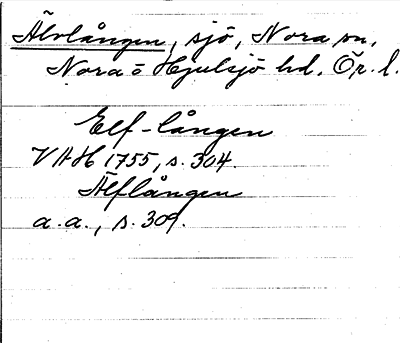 Älvlången, sjö, Nora sn,
Nora o Hjulsjö hd. Ör. l.
Elf-lången
VAH 1755, s. 304.
Älflången
a. a., s. 309.